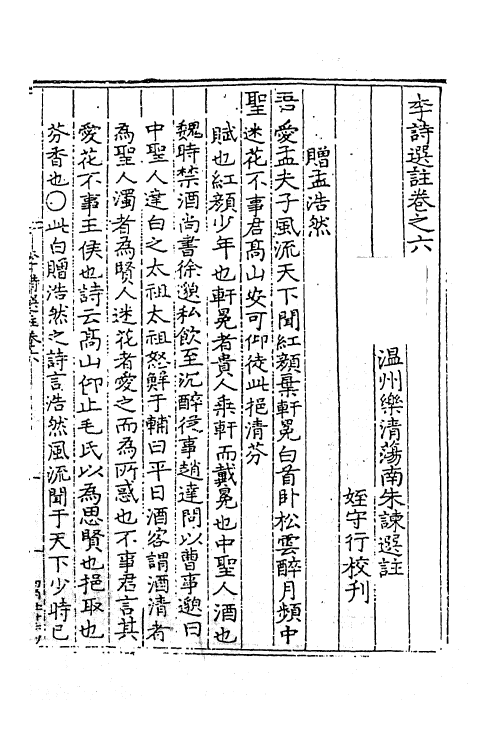 李詩選註卷之六
温州樂清蕩南朱諫選註
姪守行校刊
贈孟浩然
吾愛孟夫子風流天下聞紅顔棄軒冕白首卧松雲醉月頻中
聖迷花不事君髙山安可仰徒此挹清芬
賦也紅顔少年也軒冕者貴人乘軒而戴冕也中聖人酒也
魏時禁酒尚書徐邈私飲至沉醉從事趙達問以曹事邈曰
中聖人達白之太祖太祖怒鮮于輔曰平日酒客謂酒清者
為聖人濁者為賢人迷花者愛之而為所惑也不事君言其
愛花不事王侯也詩云髙山仰止毛氏以為思賢也挹取也
芬香也〇此白贈浩然之詩言浩然風流聞于天下少時已